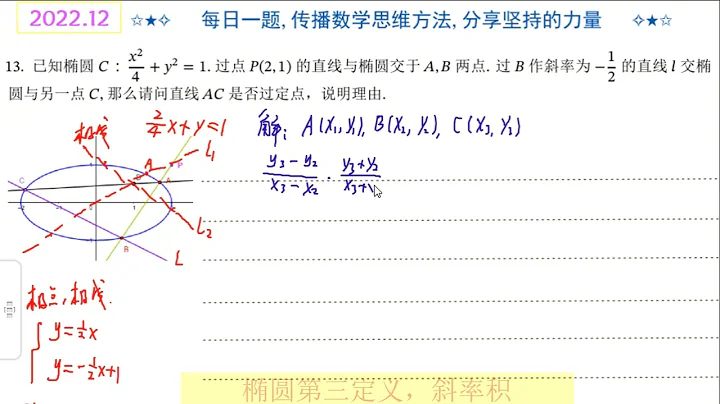 2022.12 ☆★✧ 每日一题, 传播数学思维方法, 分享坚持的力量 ✧★☆
13. 已知椭圆 C : x²/4 + y² = 1. 过点 P(2, 1) 的直线与椭圆交于 A, B 两点. 过 B 作斜率为 −1/2 的直线 l 交椭
圆与另一点 C, 那么请问直线 AC 是否过定点，说明理由.
极线 2/4 x + y = 1 解: A(x₁, y₁), B(x₂, y₂), C(x₃, y₃)
(y₃ − y₂)/(x₃ − x₂) · (y₃ + y₂)/(x₃ +
A P L₁
C D A
-2 1
L₂
-1 B L
极点, 极线.
y = ½x
y = −½x + 1
椭圆第三定义，斜率积